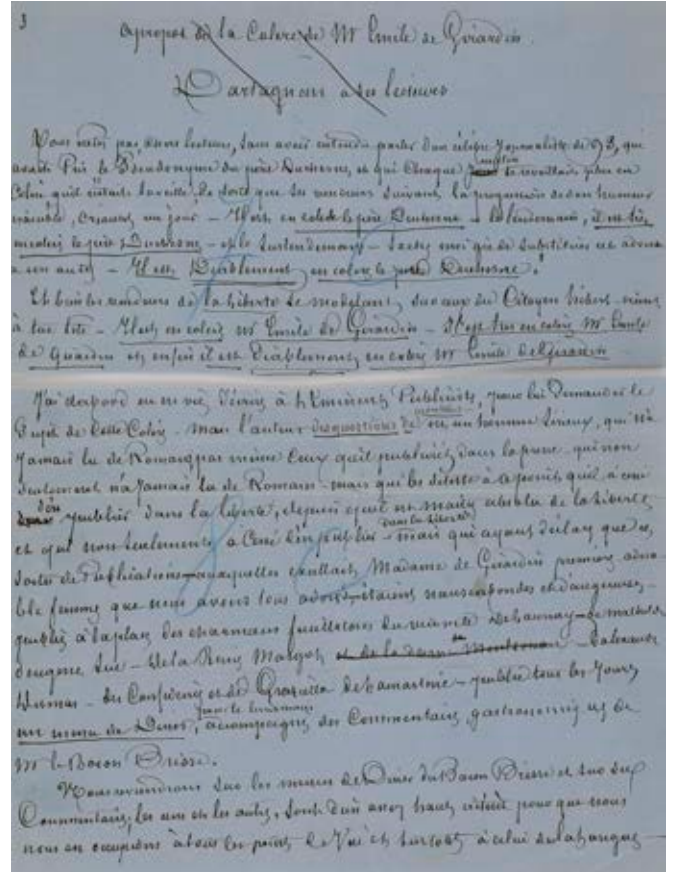 3
apropos de la Colere de Mr Emile de Girardin.
Dartagnan a ses lecteurs
Vous n'etes pas, chers lecteurs, sans avoir entendu parler d'un célèbre Journaliste de 93, qui
avait Pris le Pseudonyme du père Duchesne, et qui Chaque matin se reveillait plus en
de sorte que ses vendeurs suivant la progression de son humeur
criaient un jour – Il est en colere le père Duchesne – le lendemain, il est très
en colere le père Duchesne – et le surlendemain –
a son – Il est Diablement en colere le père Duchesne.
Eh bien les vendeurs de la Liberté se modelant sur ceux du Citoyen hébert
à tue tête – Il est en colere mr Emile de Girardin – Il est tres en colere Mr Emile
de Girardin et enfin il est Diablement en colere Mr Emile de Girardin
J'ai d'abord eu envie d'écrire à l'Eminent Publiciste, pour lui Demander le
Sujet de cette Colere. mais l'auteur des questions de est un homme Sérieux, qui n'a
Jamais lu de Romans pas même Ceux qu'il publiait dans la presse – qui non
seulement n'a Jamais lu de Romans – mais qui les déteste à ce point qu'il a
d'en publier dans la liberté, depuis qu'il est maitre absolu de la liberté
et qui non seulement a Cessé d'en publier dans la liberté – mais qui ayant déclaré que ces
sortes de Publications – auxquelles Madame de Girardin première adora-
ble femme que nous avons tous adorée – étaient nauséabondes et dangereuses –
publie à la place des charmants feuilletons du vicomte Delaunay – de mathilde
d'eugene Sue – de la Reine Margot et de la dame de Montsoreau – Dalexandre
Dumas – des Confidences et de Graziella de Lamartine – publie tous les Jours
un menu de Diner, pour le lendemain accompagné des Commentaires gastronomiques de
Mr le Baron Brisse.
Nous reviendrons sur les menus de Diner du Baron Brisse et sur ses
Commentaires, les uns et les autres, sont d'un assez haut intérêt pour que nous
nous en occupions à tous les points de Vue et surtout à celui de la langue –